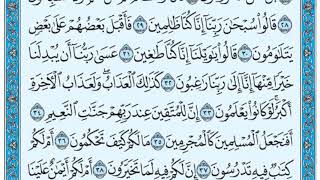 ٢٨ قَالُواْ سُبْحَٰنَ رَبِّنَآ إِنَّا كُنَّا ظَٰلِمِينَ ٢٩ فَأَقْبَلَ بَعْضُهُمْ عَلَىٰ بَعْضٍ
يَتَلَٰوَمُونَ ٣٠ قَالُواْ يَٰوَيْلَنَآ إِنَّا كُنَّا طَٰغِينَ ٣١ عَسَىٰ رَبُّنَآ أَن يُبْدِلَنَا
خَيْرًا مِّنْهَآ إِنَّآ إِلَىٰ رَبِّنَا رَٰغِبُونَ ٣٢ كَذَٰلِكَ ٱلْعَذَابُ ۖ وَلَعَذَابُ ٱلْءَاخِرَةِ
أَكْبَرُ ۚ لَوْ كَانُواْ يَعْلَمُونَ ٣٣ إِنَّ لِلْمُتَّقِينَ عِندَ رَبِّهِمْ جَنَّٰتِ ٱلنَّعِيمِ ٣٤
أَفَنَجْعَلُ ٱلْمُسْلِمِينَ كَٱلْمُجْرِمِينَ ٣٥ مَا لَكُمْ كَيْفَ تَحْكُمُونَ ٣٦ أَمْ لَكُمْ
كِتَٰبٌ فِيهِ تَدْرُسُونَ ٣٧ إِنَّ لَكُمْ فِيهِ لَمَا تَخَيَّرُونَ ٣٨ أَمْ لَكُمْ أَيْمَٰنٌ عَلَيْنَا